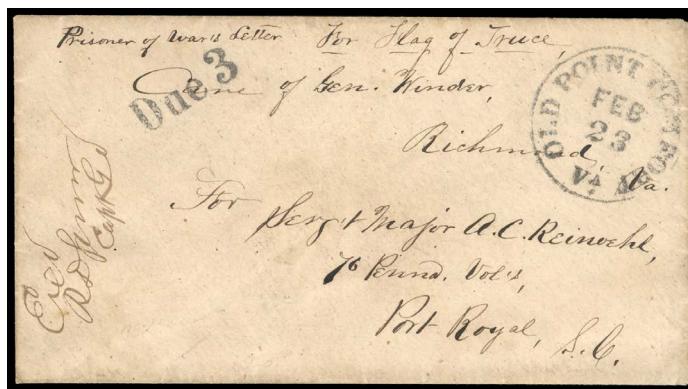 Prisoner of War's Letter For Flag of Truce,
Due 3
Care of Gen. Winder,
OLD POINT COMFORT
FEB
23
Va
Richmond, Va.
For
Serg't Major A. C. Reinoehl,
76 Penna. Vol's,
Port Royal, S. C.
Capt